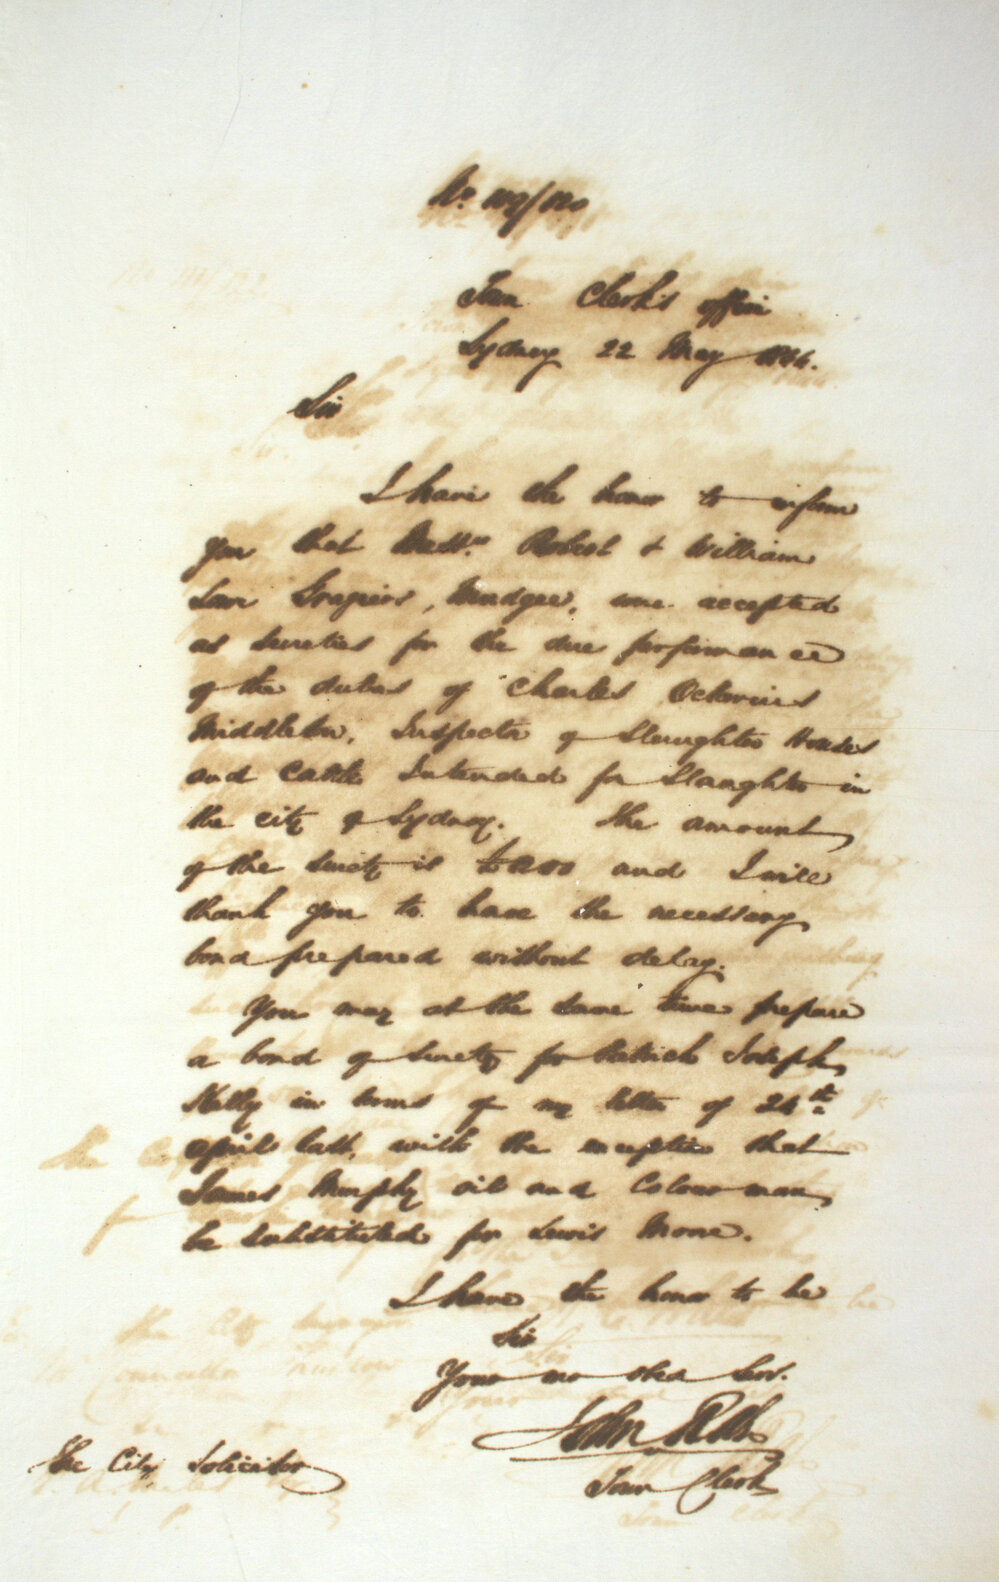 No. 109/120
Town Clerk's office
Sydney 22 May 1864.
Sir
I have the honor to inform
you that Messrs Robert & William
Lowe Graziers, Mudgee, were accepted
as sureties for the due performance
of the duties of Charles Octavius
Middleton, Inspector of Slaughter Houses
and Cattle Intended for Slaughter in
the city of Sydney. The amount
of the surety is £200 and I will
thank you to have the necessary
bond prepared without delay.
You may at the same time prepare
a bond of surety for Patrick Joseph
Kelly in terms of my letter of 24th
april last, with the exception that
James Murphy oil and Colourman
be substituted for Lewis Moore.
I have the honor to be
Sir
Your mo obed Serv.
John
Town Clerk
The City Solicitor